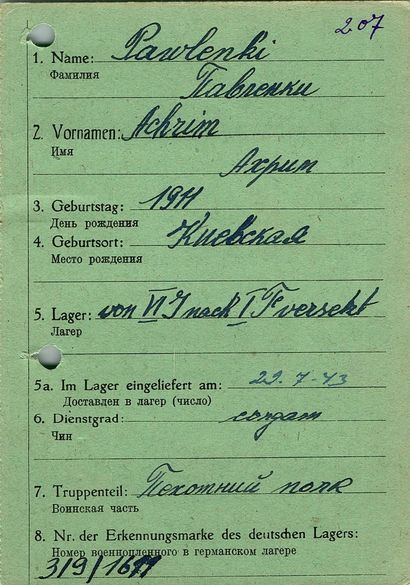 207
1. Name: Pawlenki
Фамилия
Павленки
2. Vornamen: Achrim
Имя
Ахрип
3. Geburtstag: 1911
День рождения
4. Geburtsort: Киевская
Место рождения
5. Lager: von VI J nach I F versetzt
Лагер
5a. Im Lager eingeliefert am: 29.7-43
Доставлен в лагер (число)
6. Dienstgrad: солдат
Чин
7. Truppenteil: Пехотний полк
Воинская часть
8. Nr. der Erkennungsmarke des deutschen Lagers:
Номер военнопленного в германском лагере
319/1611